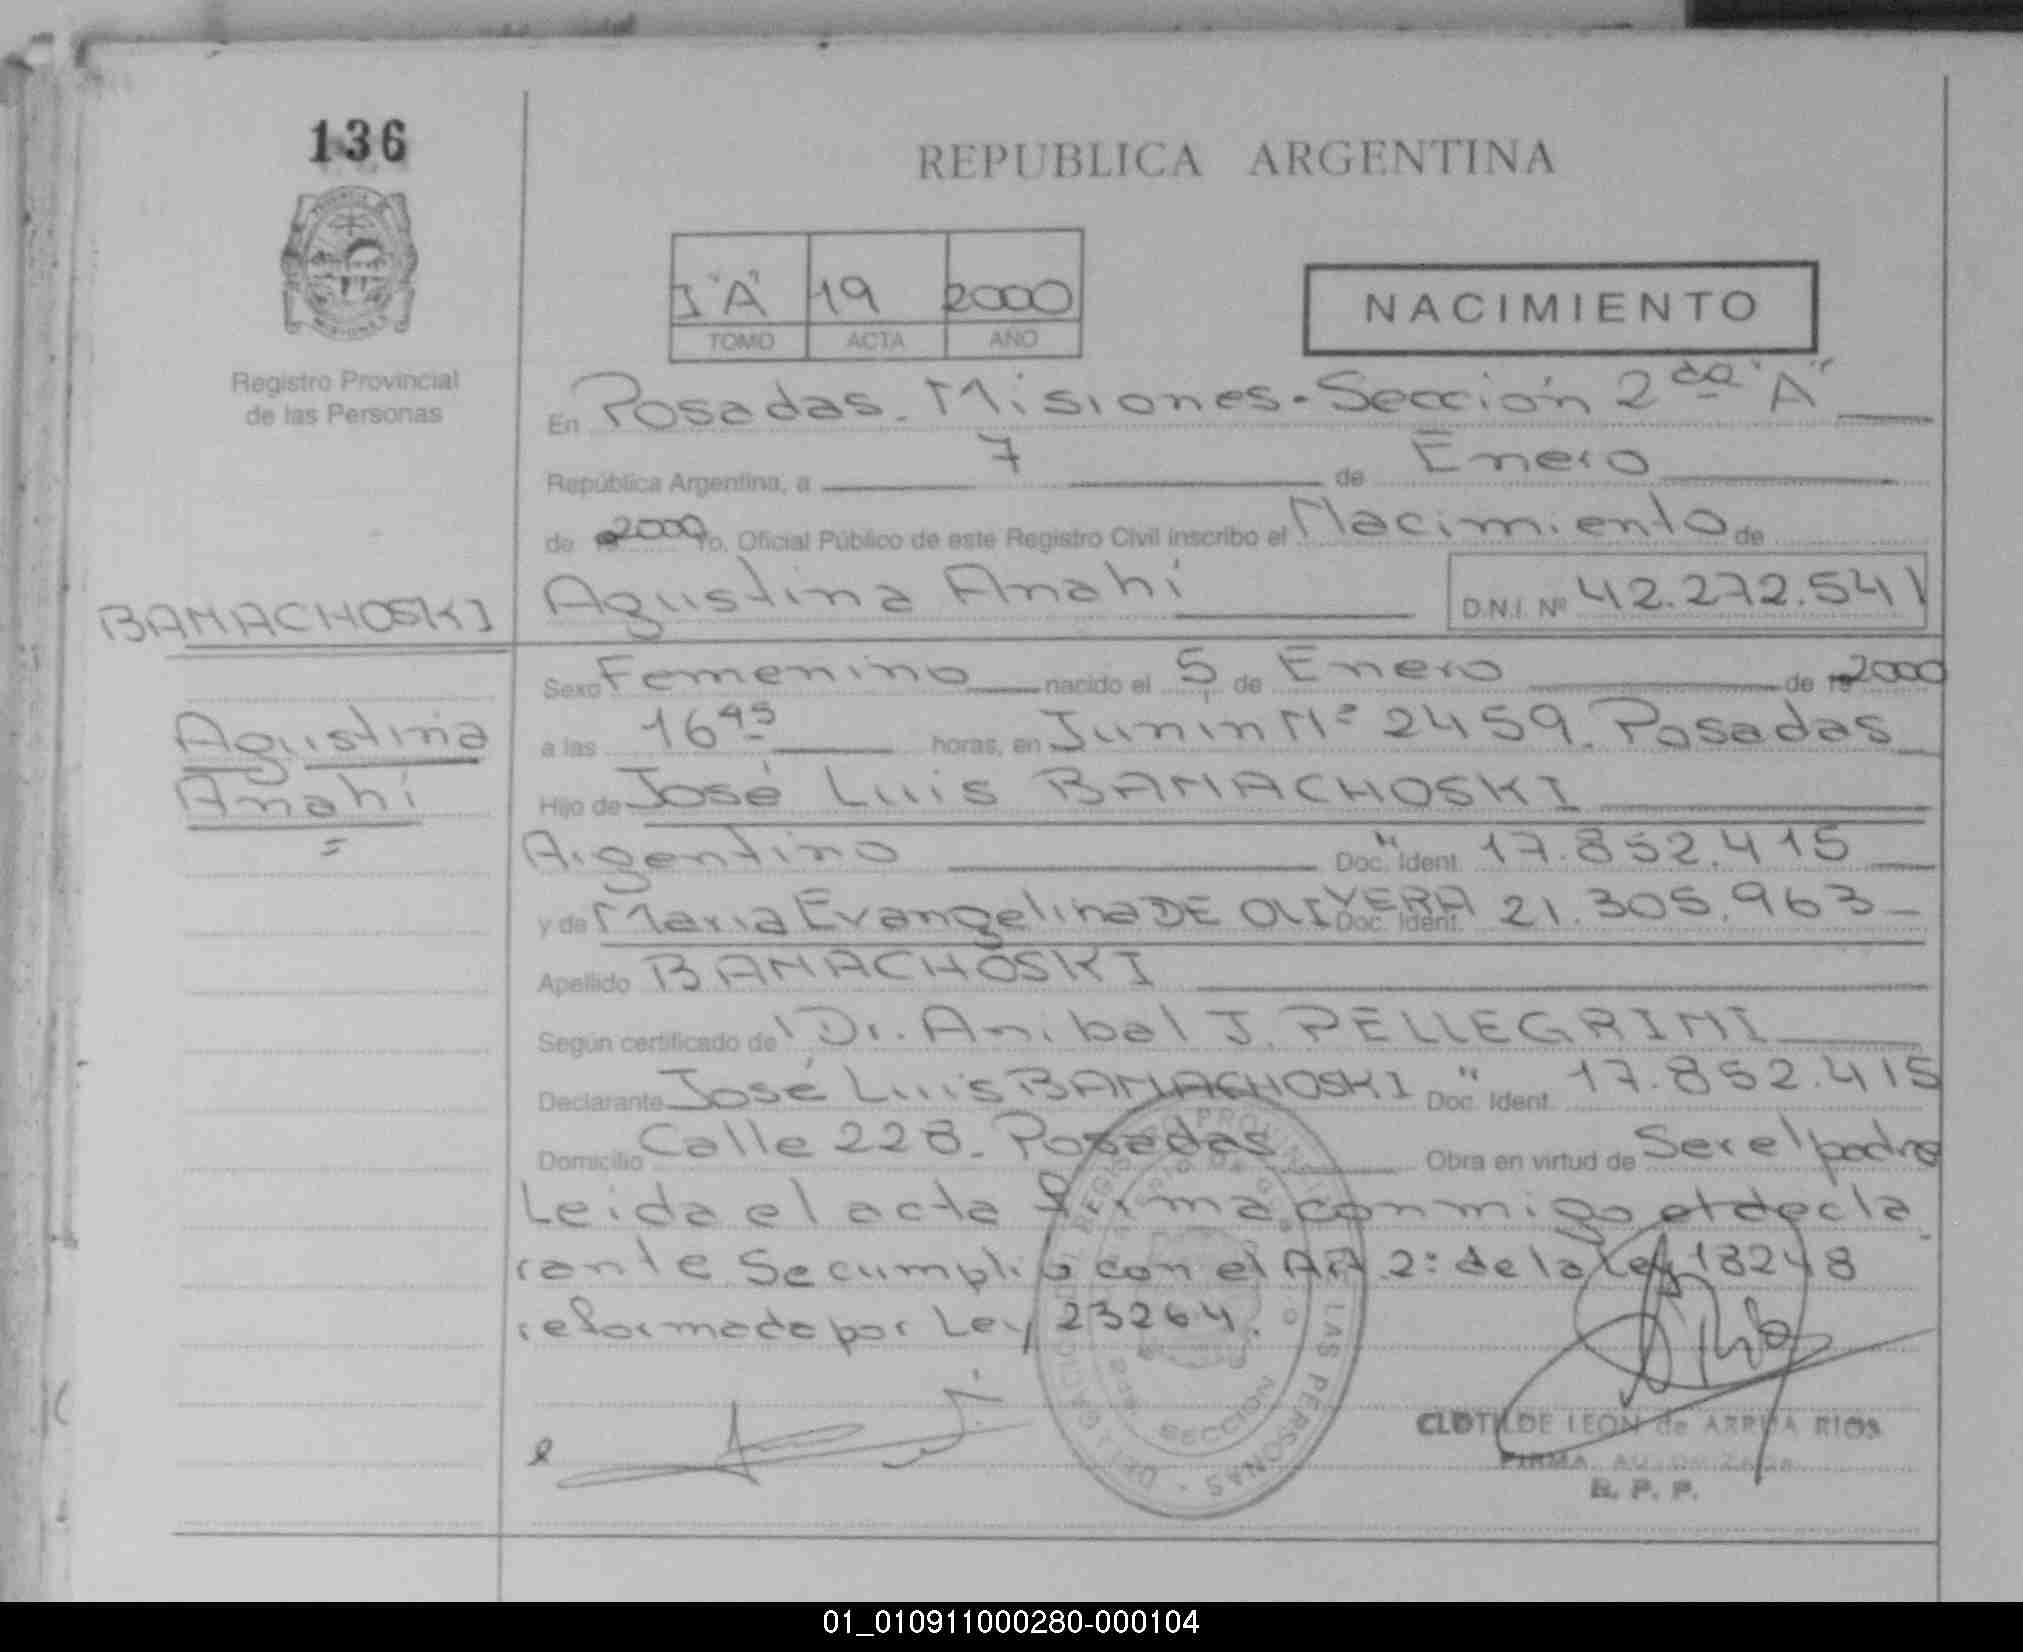 136
REPUBLICA ARGENTINA
I "A" 19 2000
TOMO ACTA AÑO
NACIMIENTO
Registro Provincial
de las Personas
En Posadas. Misiones. Sección 2da "A"
República Argentina, a 7 de Enero
de 2000 Yo, Oficial Público de este Registro Civil inscribo el Nacimiento de
BANACHOSKI Agustina Anahí D.N.I. Nº 42.272.541
Sexo Femenino nacido el 5 de Enero de 2000
Agustina
Anahí
a las 16 45 horas, en Junin Nº 2459. Posadas
Hijo de José Luis BANACHOSKI
Argentino Doc. " Ident. 17.852.415
y de Maria Evangelina DE OLIVERA Doc. Ident. 21.305.963
Apellido BANACHOSKI
Según certificado de Dr. Anibal J. PELLEGRINI
Declarante José Luis BANACHOSKI Doc. " Ident. 17.852.415
Domicilio Calle 228. Posadas Obra en virtud de Ser el padre
Leida el acta firma conmigo el decla
rante Se cumplió con el Art. 2: de la Ley 18248
reformada por Ley 23264.
REGISTRO PROVINCIAL DE LAS PERSONAS
SECCION
CLOTILDE LEON de ARRUA RIOS
FIRMA AUTORIZADA
R. P. P.
01_010911000280-000104